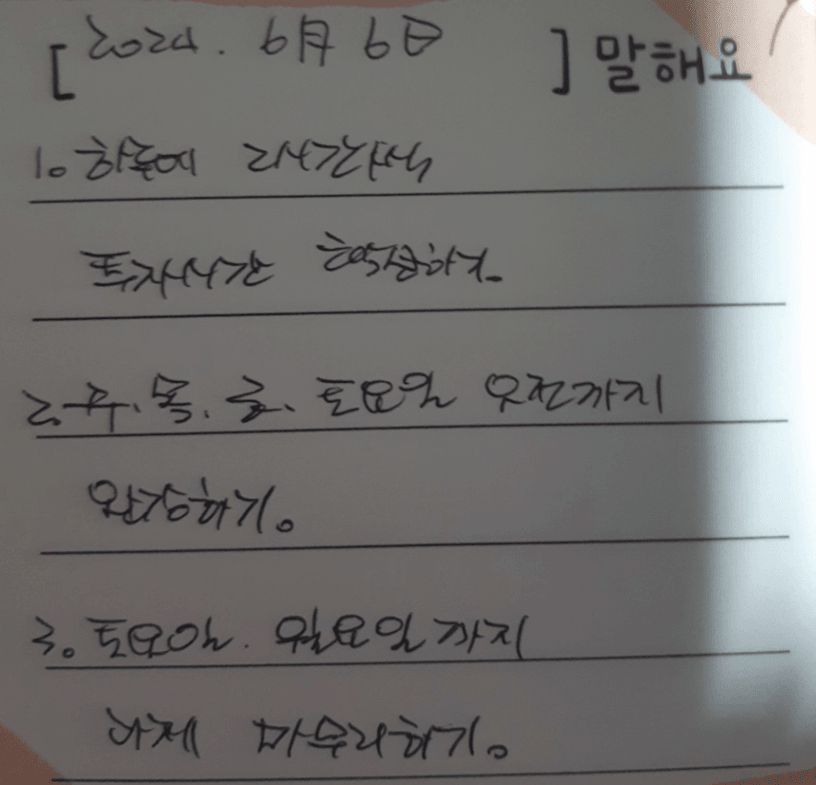 [ 2024. 6月 6日 ] 말해요
1. 하루에 2시간씩
투자시간 확정하기.
2. 수. 목. 금. 토요일 오전까지
완강하기.
3. 토요일. 월요일까지
과제 마무리하기.